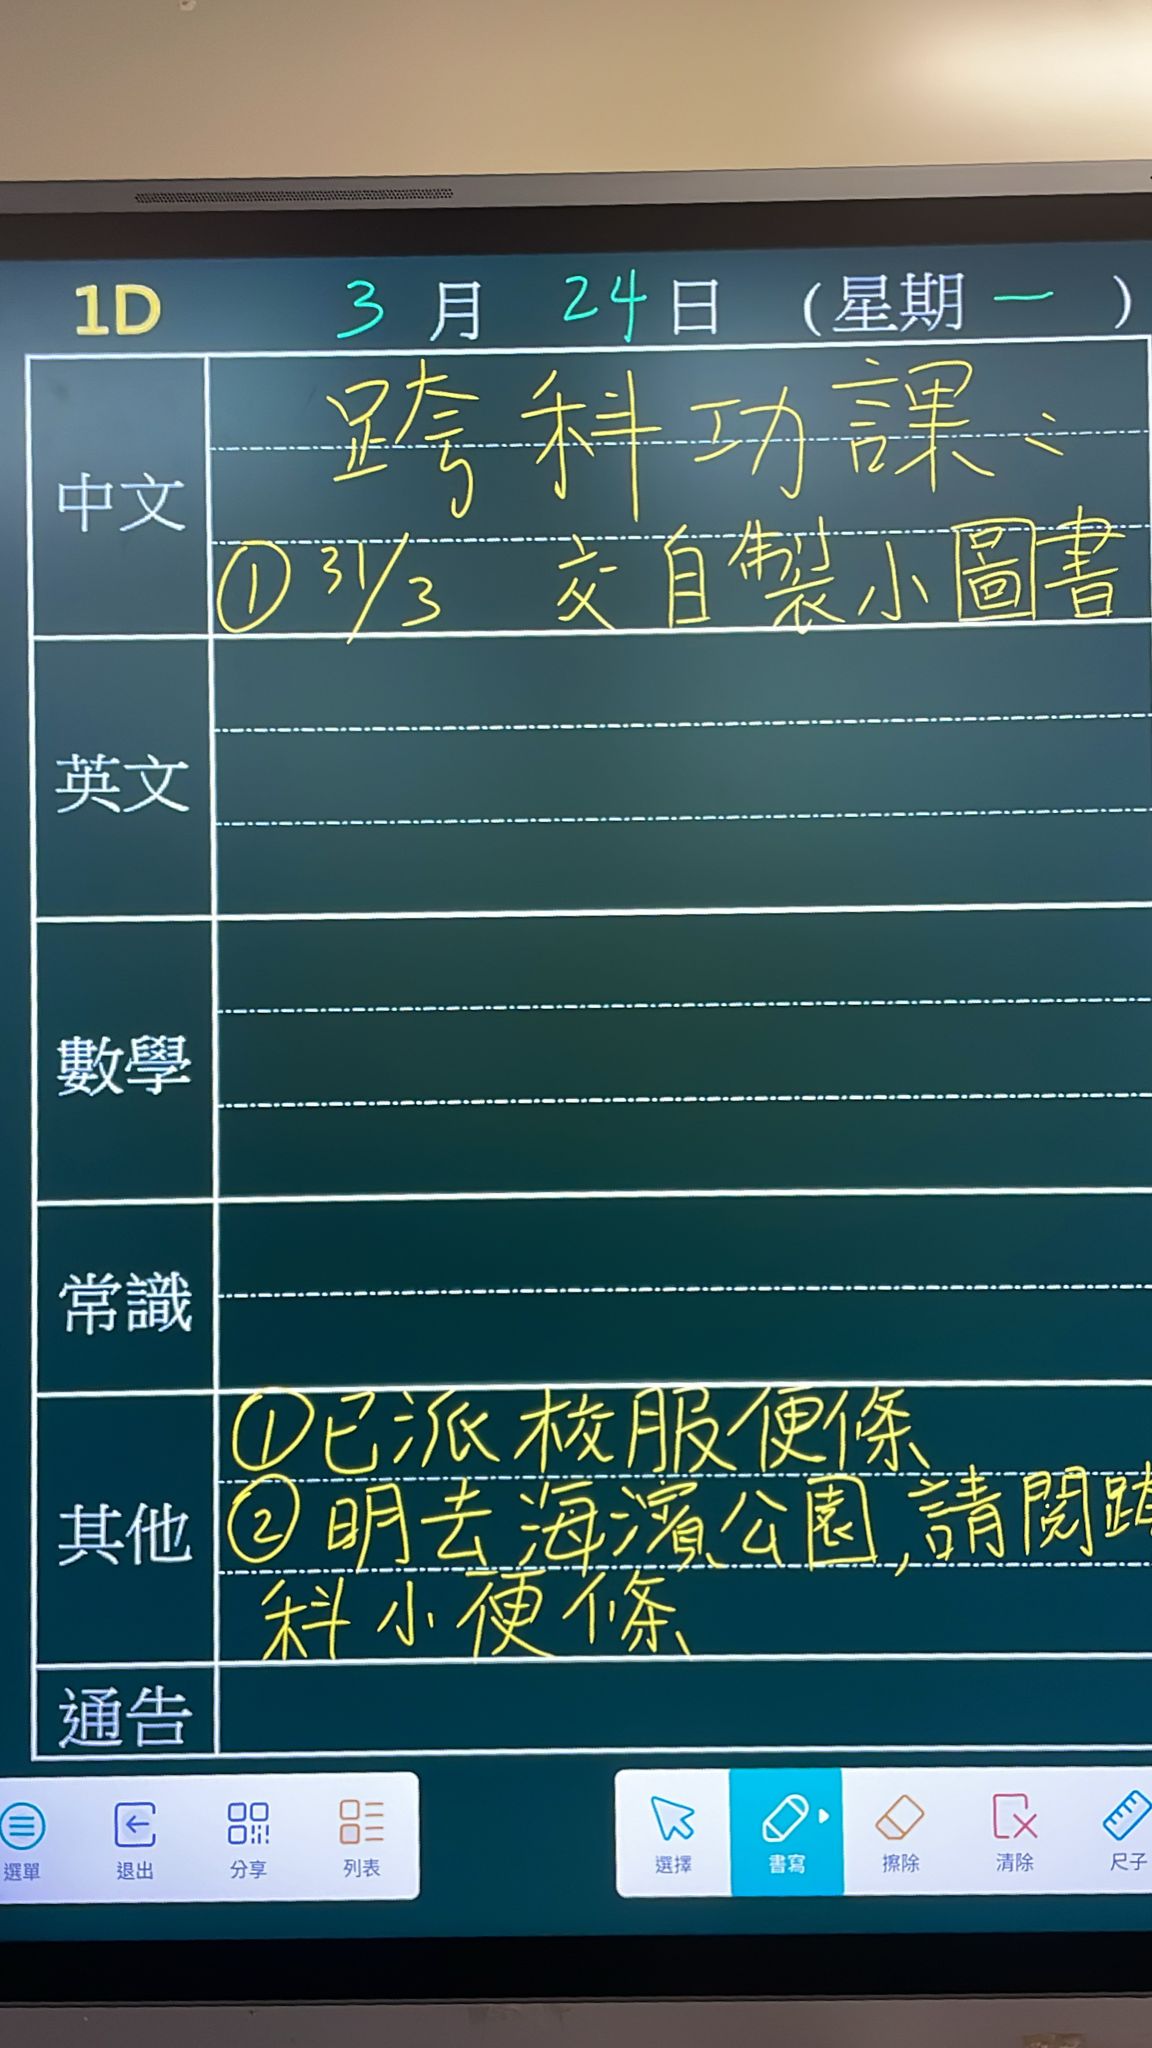 1D 3月24日(星期一)
中文
跨科功課：
① 31/3 交自製小圖書
英文
數學
常識
其他
①已派校服便條
②明去海濱公園,請閱跨
科小便條
通告
選單 退出 分享 列表 選擇 書寫 擦除 清除 尺子